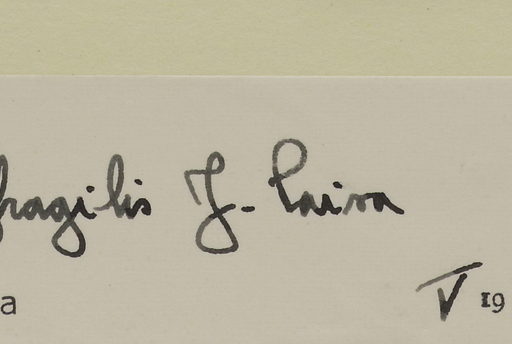 fragilis J. Paiva
a
V 19